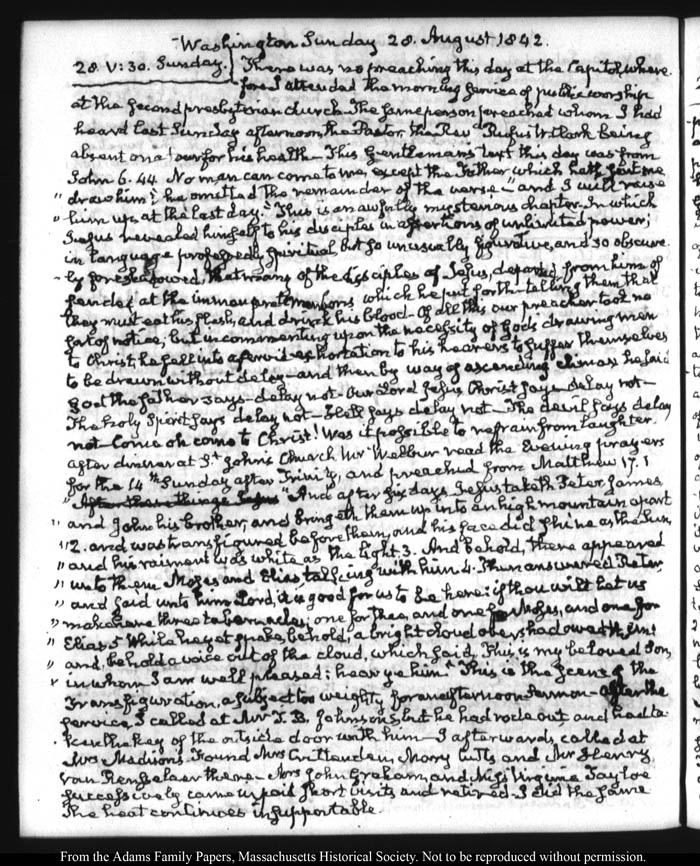 Washington Sunday 28. August 1842.
28. V:30. Sunday. There was no preaching this day at the Capitol, where-
fore I attended the morning service of public worship
at the second presbyterian church. The same person preached whom I had
heard last Sunday afternoon, the Pastor, the Revd Rufus W. Clark being
absent on a tour for his health. This Gentleman's text this day was from
John 6. 44. No man can come to me, except the Father, which hath sent me
" draw him: he omitted the remainder of the verse—and I will raise
" him up at the last day." This is an awfully mysterious chapter. In which
Jesus revealed himself to his disciples in assertions of unlimited power;
in language professedly spiritual but so unusually figurative, and so obscure-
ly foreshadowed, that many of the disciples of Jesus, departed from him of-
fended at the immense pretensions which he put forth—telling them that
they must eat his flesh, and drink his blood—Of all this our preacher took no
sort of notice; but in commenting upon the necessity of God's drawing men
to Christ, he fell into a fervid exhortation to his hearers to suffer themselves
to be drawn without delay—and then by way of ascending climax he said
God the father says—delay not—Our Lord Jesus Christ says delay not—
The holy Spirit says delay not—Hell says delay not—The devil says delay
not—Come oh come to Christ! Was it possible to refrain from laughter.
After dinner at St John's Church Mr Welbur read the Evening prayers
for the 14th Sunday after Trinity, and preached from Matthew 17. 1
"And after six days Jesus taketh Peter, James,
" and John his brother, and bringeth them up into an high mountain apart
" 2. and was transfigured before them, and his face did shine as the Sun,
" and his raiment was white as the light 3. And behold, there appeared
" unto them Moses and Elias talking with him 4. Then answered Peter,
" and said unto him Lord, it is good for us to be here: if thou wilt let us
" make here three tabernacles; one for thee, and one for Moses, and one for
" Elias 5 While he yet spake, behold, a bright cloud overshadowed them:
" and, behold a voice out of the cloud, which said, This is my beloved Son,
" in whom I am well pleased: hear ye him." This is the scene of the
Transfiguration, a subject too weighty for an afternoon sermon—After the
service, I called at Mr T. B. Johnson's, but he had rode out and had ta-
ken the key of the outside door with him—I afterwards called at
Mrs Madison's. Found Mrs Crittenden, Mary Cutts and Mr Henry
Van Rensselaer there—Mrs John Graham, and Miss Virginia Tayloe
successively came in, paid short visits and retired. I did the same
The heat continues insupportable.
From the Adams Family Papers, Massachusetts Historical Society. Not to be reproduced without permission.